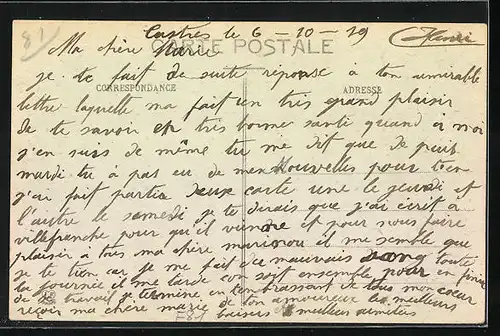 81
Castres le 6-10-19
Henri
CARTE POSTALE
Ma chère Marie
CORRESPONDANCE
ADRESSE
je te fait de suite réponse à ton aimirable
lettre laquelle ma fait un très grand plaisir
de te savoir en très bonne santé quand à moi
j'en suis de même tu me dit que de puis
mardi tu à pas eu de mes Nouvelles pourtien
j'ai fait partir deux carte une le jeudi et
l'autre le samedi je te dirais que j'ai écrit à
villefranche pour qu'il viendre et pour nous faire
plaisir à tous ma chère marinou il me semble que
je te tien car je me fait du mauvais sang toute
la journée il me tarde con soit ensemble pour en finire
de travail je termine en t'en brassant de tous mon coeur
reçoir ma chère marie de ton amoureux les meilleurs
baisers meilleurs amitiers
F81